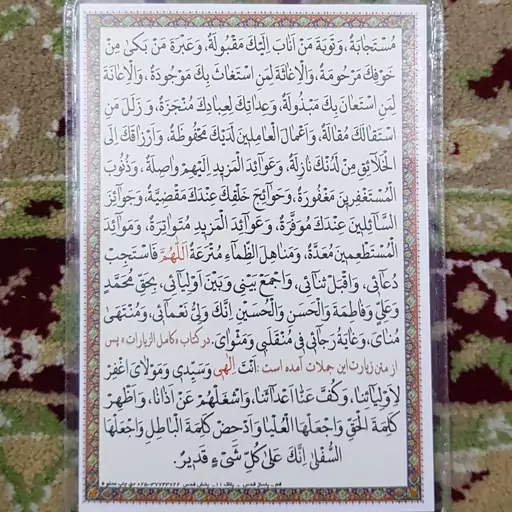 مُسْتَجابَةٌ، وَتَوْبَةَ مَنْ اَنابَ اِلَيْكَ مَقْبُولَةٌ، وَعَبْرَةَ مَنْ بَكىٰ مِنْ
خَوْفِكَ مَرْحُومَةٌ، وَالْاِغاثَةَ لِمَنِ اسْتَغاثَ بِكَ مَوْجُودَةٌ، وَالْاِعانَةَ
لِمَنِ اسْتَعانَ بِكَ مَبْذُولَةٌ، وَعِداتِكَ لِعِبادِكَ مُنْجَزَةٌ، وَ زَلَلَ مَنِ
اسْتَقالَكَ مُقالَةٌ، وَاَعْمالَ الْعامِلينَ لَدَيْكَ مَحْفُوظَةٌ، وَاَرْزاقَكَ اِلَى
الْخَلائِقِ مِنْ لَدُنْكَ نازِلَةٌ، وَعَوآئِدَ الْمَزيدِ اِلَيْهِمْ واصِلَةٌ، وَذُنُوبَ
الْمُسْتَغْفِرينَ مَغْفُورَةٌ، وَحَوآئِجَ خَلْقِكَ عِنْدَكَ مَقْضِيَّةٌ، وَجَوآئِزَ
السَّآئِلينَ عِنْدَكَ مُوَفَّرَةٌ، وَعَوآئِدَ الْمَزيدِ مُتَواتِرَةٌ، وَمَوآئِدَ
الْمُسْتَطْعِمينَ مُعَدَّةٌ، وَمَناهِلَ الظِّمآءِ مُتْرَعَةٌ اَللّٰهُمَّ فَاسْتَجِبْ
دُعآئى، وَاقْبَلْ ثَنآئى، وَاجْمَعْ بَيْنى وَبَيْنَ اَوْلِيآئى، بِحَقِّ مُحَمَّدٍ
وَعَلِىٍّ وَفاطِمَةَ وَالْحَسَنِ وَالْحُسَيْنِ اِنَّكَ وَلِىُّ نَعْمآئى، وَمُنْتَهىٰ
مُناىَ، وَغايَةُ رَجآئى فى مُنْقَلَبى وَمَثْواىَ. در كتاب «كامل الزيارات» پس
از متن زيارت اين جملات آمده است: اَنْتَ اِلٰهى وَسَيِّدى وَمَوْلاىَ اغْفِرْ
لِاَوْلِيآئِنا، وَكُفَّ عَنّا اَعْدآئَنا، وَاشْغَلْهُمْ عَنْ اَذانا، وَاَظْهِرْ
كَلِمَةَ الْحَقِّ وَاجْعَلْهَا الْعُلْيا وَاَدْحِضْ كَلِمَةَ الْباطِلِ وَاجْعَلْهَا
السُّفْلىٰ اِنَّكَ عَلىٰ كُلِّ شَىْءٍ قَديرٌ.
قم - پاساژ قدس - پلاک ۱۱ - پخش قدس